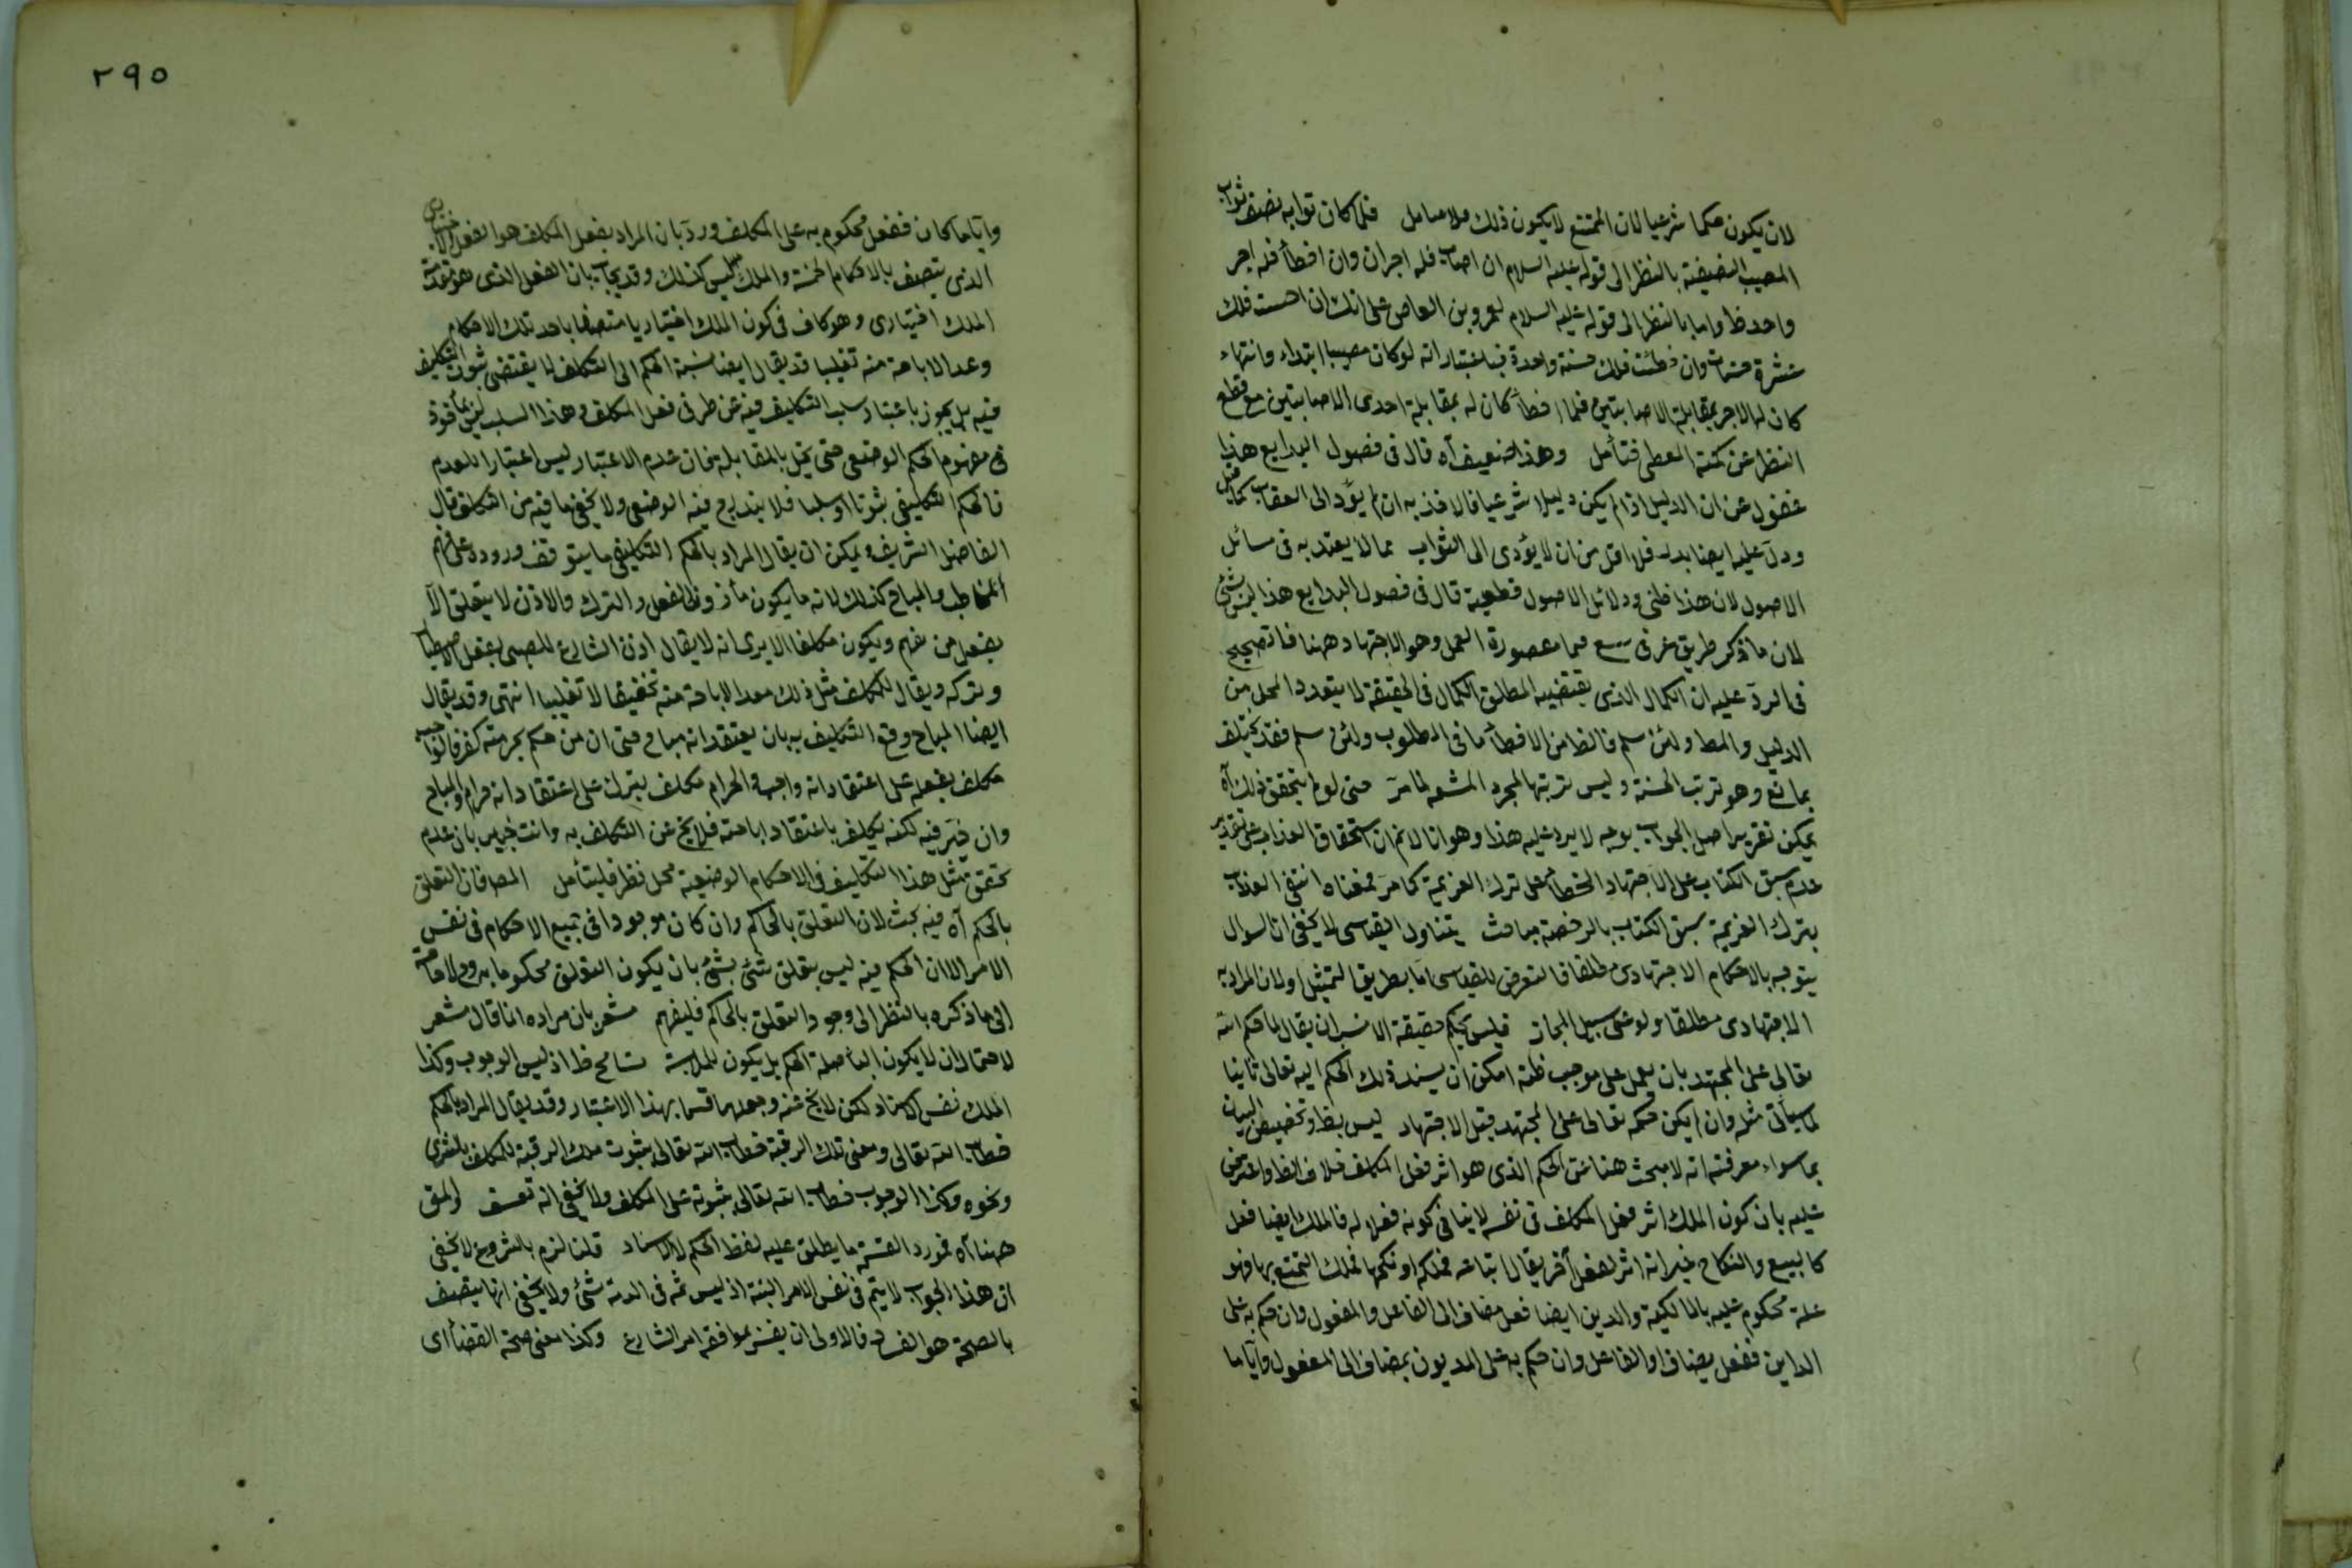 لان يكون حكما شرعيا لان الممتنع لا يكون ذلك فلما كان ثوابه نصف ثواب
المصيب بالنظر الى قوله عليه السلام ان اصاب فله اجران وان اخطأ فله اجر
واحد واما بالنظر الى قوله عليه السلام لعمرو بن العاص على انك ان اصبت فلك
عشرة حسنات وان اخطئت فلك حسنة واحدة فباعتبار انه لو كان مصيبا ابتداء وانتهاء
كان له الاجر بمقابلة الاصابتين فلما اخطأ كان له بمقابلة احدى الاصابتين مع قطع
النظر عن فتأمل وهذا ضعيف آه قال فى فصول البدايع هذا
غفول عن ان الدليل اذا لم يكن دليلا شرعيا فالاخذ به ان لم يؤد الى العقاب
ودل عليه ايضا فلا اقل من ان لا يؤدى الى الثواب مما لا يعتد به فى مسائل
الاصول لان هذا ظنى ودلائل الاصول قطعية قال فى فصول البدايع هذا ليس بشئ
لان ما ذكر طريق العمل وهو الاجتهاد ههنا
فى الرد عليه ان الكمال الذى يقتضيه المطلق الكمال فى الحقيقة لا يتعدد المحل من
الدليل والمط ولئن سلم فالظ من الاخطأ ما فى المطلوب ولئن سلم فقد يختلف
بمانع وهو ترتب الحسنة وليس ترتبها لمجرد المشقة لما مر حتى لو لم يتحقق ذلك آه
يمكن تقرير اصل الجواب بوجه لا يرد عليه هذا وهو انا لا نم ان استحقاق العذاب على تقدير
عدم سبق الكتاب على الاجتهاد الخطأ على ترك العزيمة كما مر فمعناه انتفى العذاب
بترك العزيمة بسبق الكتاب بالرخصة مباحث يتناول القياسى لا يخفى ان السوال
يتوجه بالاحكام الاجتهادى مطلقا فالتعرض للقياسى اما بطريق التمثيل او لان المراد به
الاجتهادى مطلقا ولو على سبيل المجاز فليس بحكم حقيقة الانسب ان يقال لما حكم الله
تعالى على المجتهد بان يعمل على موجب ظنه امكن ان يسند ذلك الحكم اليه تعالى ثانيا
لما سيأتى مثله وان لم يكن حكمه تعالى على المجتهد قبل الاجتهاد ليس بظ وتخصيص البيان
بما سواه معرفته انه لا مبحث هنا عن الحكم الذى هو اثر فعل المكلف خلاف الظ واعترض
عليه بان كون الملك اثر فعل المكلف فى نفسه لا ينافى كونه فعلا له فالملك ايضا فعل
كالبيع والنكاح غير انه اثر لفعل آخر يقال ابتاعه فملكه او نكحها فملك التمتع بها فهو
علة محكوم عليه بالمالكية والدين ايضا فعل مضاف الى الفاعل والمفعول وان حكم به على
الداين ففعل يضاف الفاعل وان حكم به على المديون بمضاف الى المفعول وايا ما
٢٩٥
وايا ما كان ففعل محكوم به على المكلف ورد بان المراد بفعل المكلف هو الفعل الاختيارى
الذى يتصف بالاحكام الخمسة والملك ليس كذلك وقد يجاب بان الفعل الذى هو مقدمة
الملك اختيارى وهو كاف فى كون الملك اختياريا متصفا باحد تلك الاحكام
وعد الاباحة منه تغليبا قد يقال ايضا نسبة الحكم الى التكلف لا يقتضى ثبوت التكليف
فيه بل يجوز باعتبار سلب التكليف فيه عن طرفى فعل المكلف وهذا السلب ليس مأخوذ
فى مفهوم الحكم الوضعى حتى يخل بالمقابلة فان عدم الاعتبار ليس اعتبارا للعدم
فالحكم التكليفى ثبوتا او سلبا فلا يندرج فيه الوضعى ولا يخفى ما فيه من التكلف قال
الفاضل الشريف يمكن ان يقال المراد بالحكم التكليفى ما يتوقف وروده على فهم
المخاطب والمباح كذلك لانه ما يكون مأذونا لفعل والترك والاذن لا يتعلق الا
بفعل من يفهم ويكون مكلفا الا يرى انه لا يقال اذن الشارع للصبى بفعل الاصطياد
وتركه ويقال للمكلف مثل ذلك معد الاباحة منه تحقيقا لا تغليبا انتهى وقد يقال
ايضا المباح وقع التكليف به بان يعتقد انه مباح حتى ان من حكم بحرمته كفر فالواجب
مكلف بفعله على اعتقاد انه واجب والحرام مكلف بترك على اعتقاد انه حرام والمباح
وان خير فيه لكنه يكلف باعتقاد اباحته فلا يخ عن التكلف به وانت خبير بان عدم
تحقق مثل هذا التكليف فى الاحكام الوضعية محل نظر فليتأمل فان التعلق
بالحكم آه فيه بحث لان التعلق بالحاكم وان كان موجودا فى جميع الاحكام فى نفس
الامر الا ان الحكم فيه ليس بتعلق شئ بشئ بان يكون التعلق محكوما به
الى ما ذكره بالنظر الى وجود التعلق بالحاكم فليفهم مشعر بان مراده انما قال مشعر
لاحتمال ان لا يكون الباء صلة الحكم بل يكون للملابسة تسامح ظ اذ ليس الوجوب وكذا
الملك نفس الاسناد لكن لا يخ عنه وجعلهما قسما بهذا الاعتبار وقد يقال المراد بالحكم
خطاب الله تعالى ومعنى تلك الرقبة خطاب الله تعالى بثبوت ملك الرقبة للمكلف بالشرى
ونحوه وكذا الوجوب خطاب الله تعالى بثبوته على المكلف ولا يخفى انه تعسف
ههنا آه فمورد القسمة ما يطلق عليه لفظ الحكم لا الاسناد قلنا لزم بالشروع لا يخفى
ان هذا الجواب لا يتم فى نفس الامر البتة اذ ليس ثمة فى الذمة شئ ولا يخفى انها يتصف
بالصحة فالاولى ان يفسر بموافقة امر الشارع وكذا معنى صحة القضاء اى